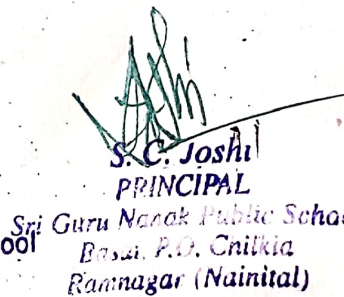 S. C. Joshi
PRINCIPAL
Sri Guru Nanak Public Scho
ool
Basai, P.O. Chilkia
Ramnagar (Nainital)